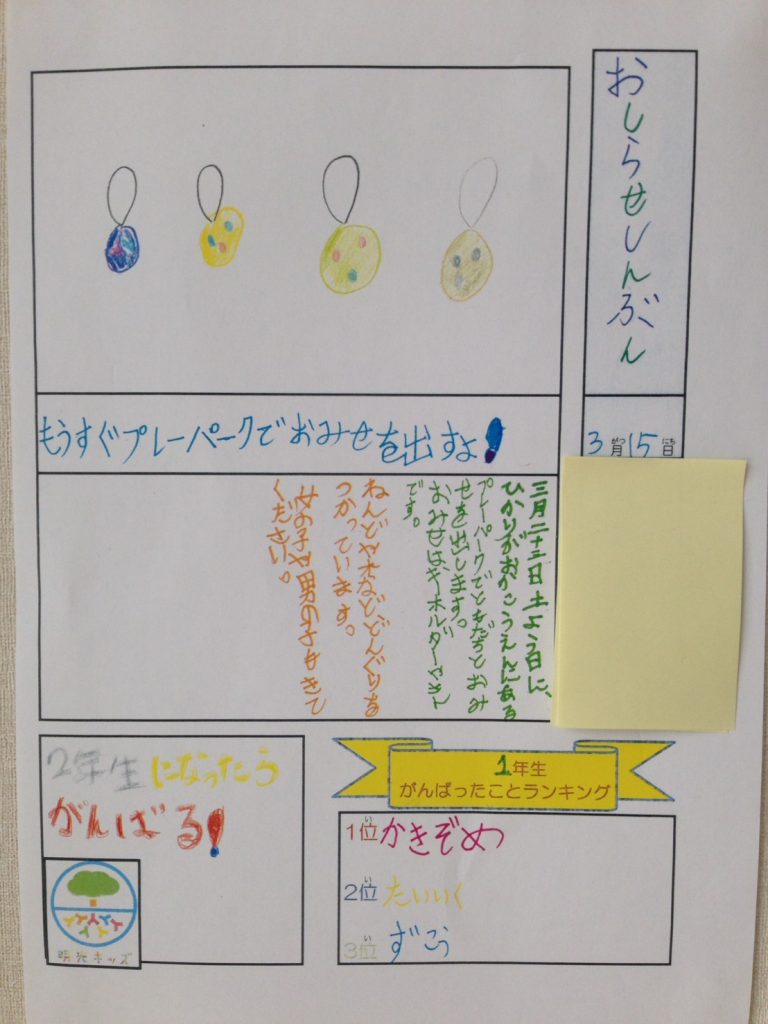 おしらせしんぶん
3月15日
もうすぐプレーパークでおみせを出すよ!
三月二十二日土よう日に、
ひかりがおかこうえんにある
プレーパークでともだちとおみ
せを出します。
おみせはキーホルダーやさん
です。
ねんどや木などどんぐりを
つかっています。
女の子や男の子もきて
ください。
2年生になったら
がんばる!
明光キッズ
1年生
がんばったことランキング
1位かきぞめ
2位たいいく
3位ずこう